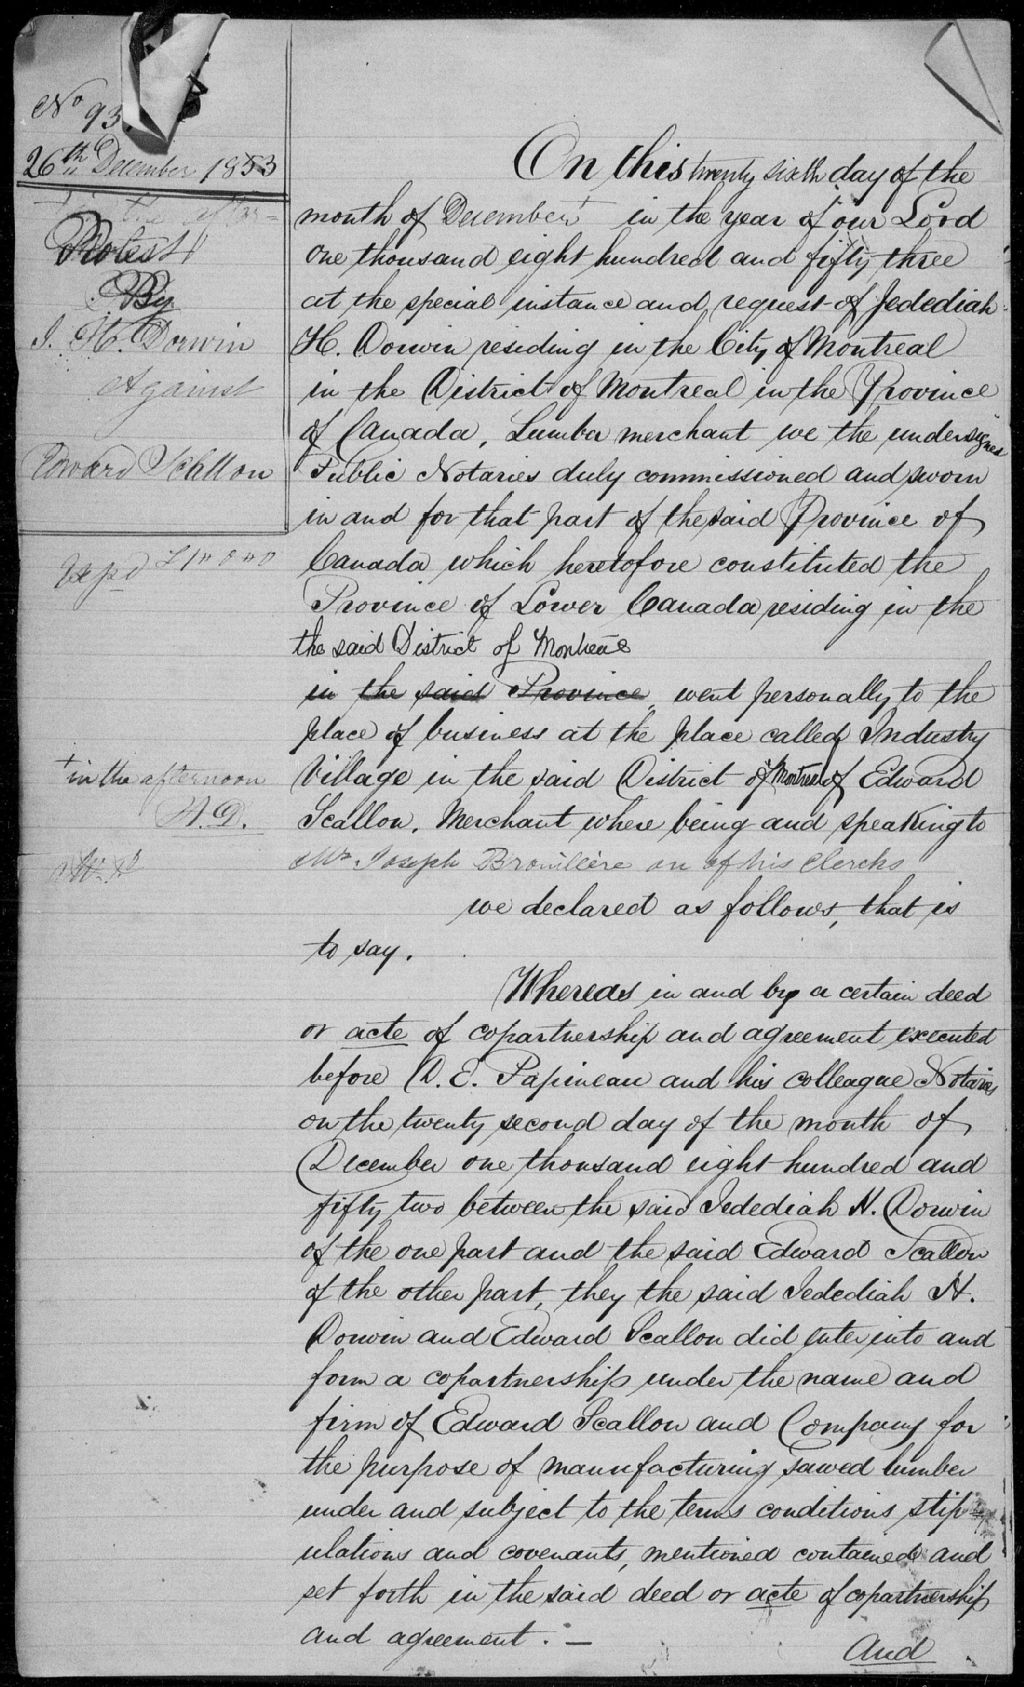 No 93
26th December 1853
Protest
By
J. H. Dorwin
Against
Edward Scallon
On this twenty sixth day of the
month of December + in the year of our Lord
one thousand eight hundred and fifty three
at the special instance and request of Jedediah
H. Dorwin residing in the City of Montreal
in the District of Montreal in the Province
of Canada, Lumber merchant we the undersigned
Public Notaries duly commissioned and sworn
in and for that part of the said Province of
Canada which heretofore constituted the
Province of Lower Canada residing in the
the said District of Montreal
in the said Province, went personally to the
place of business at the place called Industry
Village in the said District of Montreal of Edward
Scallon, Merchant where being and speaking to
Mr Joseph Brouillere on of his Clerks
we declared as follows, that is
to say.
+ in the afternoon
A.D.
Whereas in and by a certain deed
or acte of copartnership and agreement executed
before D. E. Papineau and his colleague Notaries
on the twenty second day of the month of
December one thousand eight hundred and
fifty two between the said Jedediah H. Dorwin
of the one part and the said Edward Scallon
of the other part, they the said Jedediah H.
Dorwin and Edward Scallon did enter into and
form a copartnership under the name and
firm of Edward Scallon and Company for
the purpose of manufacturing sawed lumber
under and subject to the terms conditions stip-
ulations and covenants, mentioned contained and
set forth in the said deed or acte of copartnership
and agreement. —
And